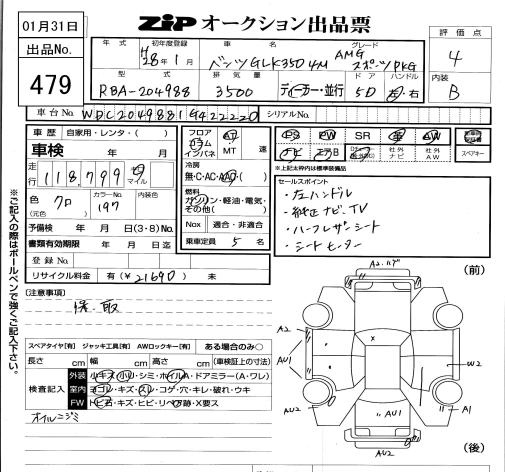 01月31日
出品No.
479
ZIPオークション出品票
評価点
4
内装
B
年式 初年度登録 車名 グレード
H28年1月 ベンツGLK350 4M AMGスポーツPKG
型式 排気量 ドア ハンドル
RBA-204988 3500 ディーラー・並行 5D 左・右
車台No. WDC2049881G422220
シリアルNo.
車歴 自家用・レンタ・( )
車検 年 月
走行 118,799 マイル
色(元色) クロ カラーNo. 197 内装色
予備検 年 月 日(3・8)No.
書類有効期限 年 月 日迄
登録No.
リサイクル料金 有(¥21690) 未
フロア コラム インパネ AT MT 速
冷房
無・C・AC・AAC・( )
燃料
ガソリン・軽油・電気・その他( )
Nox 適合・非適合
乗車定員 5 名
PS PW SR 革 AW
ナビ エアB 社外ナビ 社外AW スペアキー
*上記太枠内は標準装備品
セールスポイント
・左ハンドル
・純正ナビ、TV
・ハーフレザーシート
・シートヒーター
注意事項)
保.取
スペアタイヤ[有] ジャッキ工具[有] AWロックキー[有] ある場合のみ〇
長さ cm 幅 cm 高さ cm (車検証上の寸法)
検査記入
外装 小キズ・小凹・シミ・ホイルA・ドアミラー(A・ワレ)
室内 ヨゴレ・キズ・スレ・コゲ・穴・キレ・破れ・ウキ
FW トビ石・キズ・ヒビ・リペア跡・X要ス
オイルニジミ
※ご記入の際はボールペンで強くご記入下さい。
(前)
A2
A2
AU1
X
W2
AU2
AU1
A1
AU2
(後)